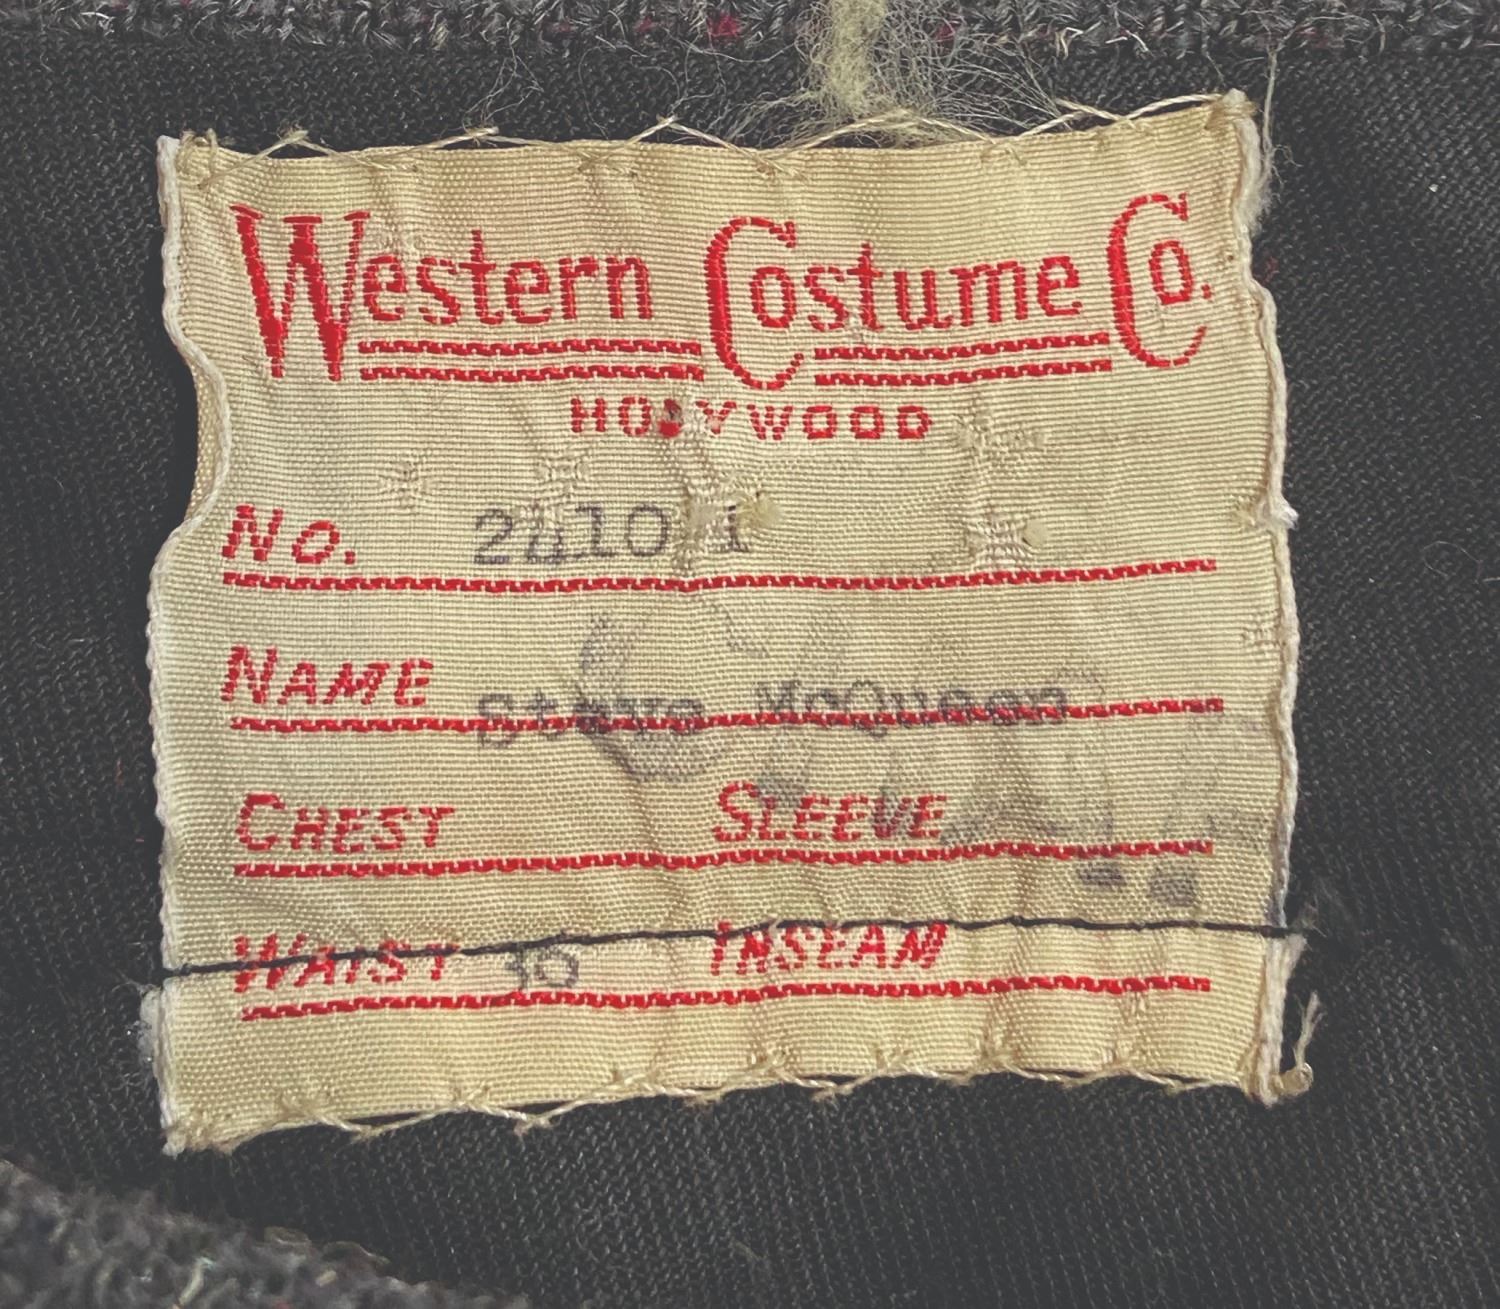 Western Costume Co.
HOLLYWOOD
No.
NAME Steve McQueen
CHEST SLEEVE
WAIST 36 INSEAM